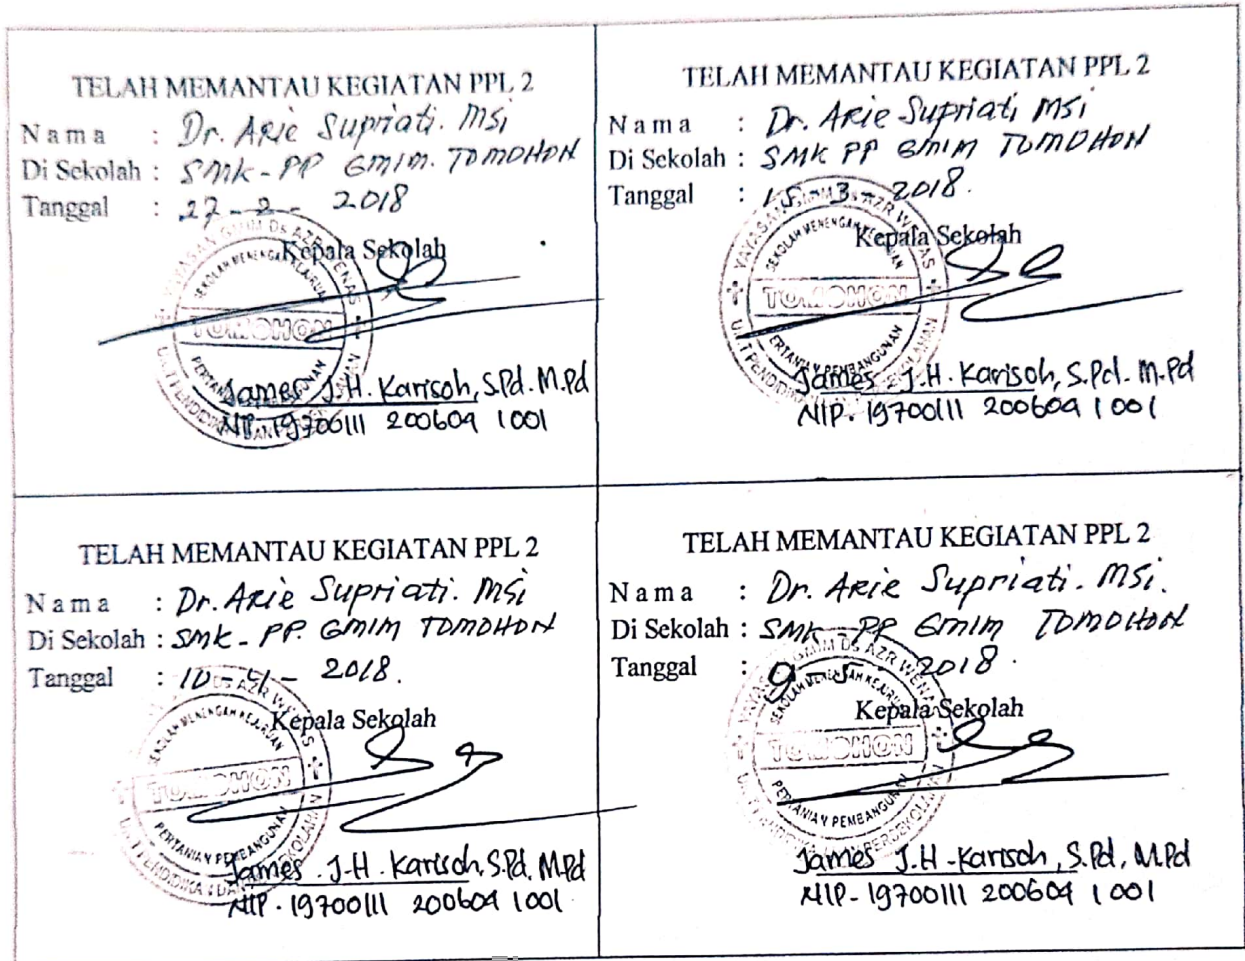 TELAH MEMANTAU KEGIATAN PPL 2
Nama : Dr. Arie Supriati. MSi
Di Sekolah : SMK-PP GMIM. TOMOHON
Tanggal : 27-2-2018
Kepala Sekolah
TOMOHON
James J.H. Karisoh, S.Pd. M.Pd
NIP. 19700111 200604 1 001
TELAH MEMANTAU KEGIATAN PPL 2
Nama : Dr. Arie Supriati, MSi
Di Sekolah : SMK PP GMIM TOMOHON
Tanggal : 15-3-2018.
Kepala Sekolah
YAYASAN GMIM Ds AZR WENAS
SEKOLAH MENENGAH KEJURUAN
TOMOHON
PERTANIAN PEMBANGUNAN
James J.H. Karisoh, S.Pd. M.Pd
NIP. 19700111 200604 1 001
TELAH MEMANTAU KEGIATAN PPL 2
Nama : Dr. Arie Supriati. MSi
Di Sekolah : SMK-PP. GMIM TOMOHON
Tanggal : 10-4-2018.
Kepala Sekolah
SEKOLAH MENENGAH KEJURUAN
TOMOHON
PERTANIAN PEMBANGUNAN
James J.H. Karisoh, S.Pd, M.Pd
NIP. 19700111 200604 1 001
TELAH MEMANTAU KEGIATAN PPL 2
Nama : Dr. Arie Supriati. MSi.
Di Sekolah : SMK-PP GMIM TOMOHON
Tanggal : 9-5-2018.
Kepala Sekolah
SEKOLAH MENENGAH KEJURUAN
TOMOHON
PERTANIAN PEMBANGUNAN
James J.H. Karisoh, S.Pd, M.Pd
NIP- 19700111 200604 1 001